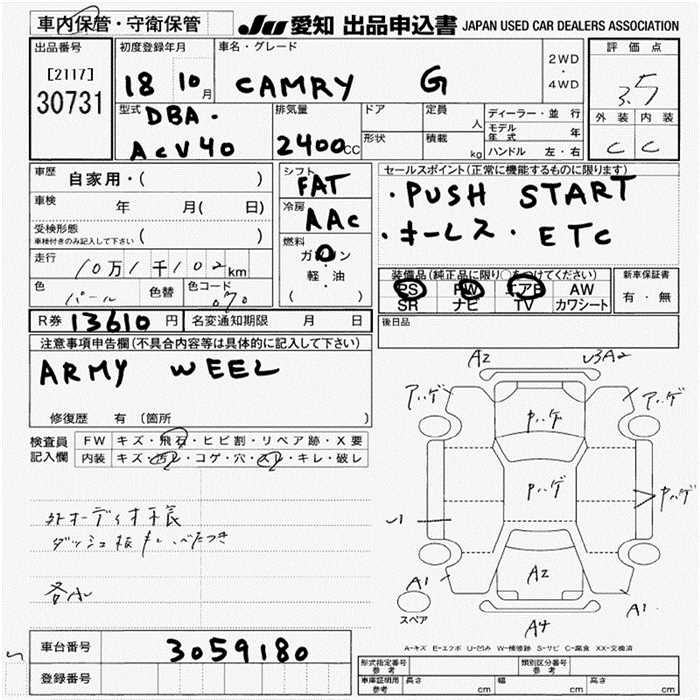 車内保管・守衛保管
JU 愛知 出品申込書 JAPAN USED CAR DEALERS ASSOCIATION
出品番号
[2117]
30731
初度登録年月
18 10月
車名・グレード
CAMRY G
2WD
・
4WD
評価点
3.5
外装 内装
C C
型式
DBA-
ACV40
排気量
2400cc
ドア
形状
定員
人
積載
kg
ディーラー・並行
モデル年式 年
ハンドル 左・右
車歴
自家用・( )
車検
年 月( 日)
受検形態
車検付きのみ記入して下さい ( )
走行
10万1千102km
色
パール
色替
色コード
070
シフト
FAT
冷房
AAC
燃料
ガソリン
・
軽・油
( )
セールスポイント(正常に機能するものに限ります)
・PUSH START
・キーレス・ETC
装備品(純正品に限り○をつけてください)
PS PW エアB AW
SR ナビ TV カワシート
新車保証書
有・無
後日品
R券 13610 円
名変通知期限 月 日
注意事項申告欄(不具合内容等は具体的に記入して下さい)
ARMY WEEL
修復歴 有(箇所 )
検査員
記入欄
FW キズ・飛石・ヒビ割・リペア跡・X要
内装 キズ・汚レ・コゲ・穴・スレ・キレ・破レ
外オーディオ
ダッシュ板 べたつき
A2
A2
アハゲ
アハゲ
ヤハゲ
ヤハゲ
ヤハゲ
A2
A1
A1
A4
スペア
A-キズ E-エクボ U-凹み W-補修跡 S-サビ C-腐食 XX-交換済
車台番号
3059180
登録番号
形式指定番号
参考
類別区分番号
参考
車庫証明用
参考
長さ cm
幅 cm
高さ cm